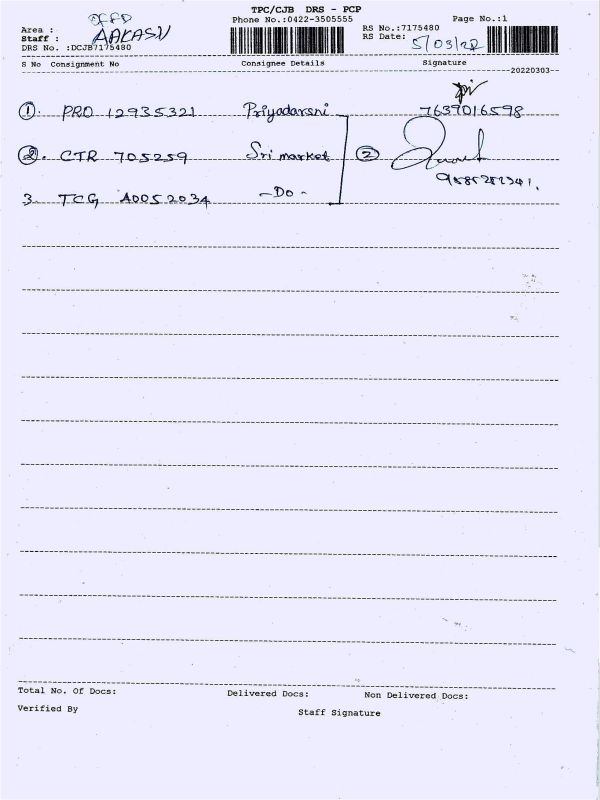 TPC/CJB DRS - PCP
Phone No.:0422-3505555
Page No.:1
Area : OFFD
Staff : AAKASH
DRS No. :DCJB7175480
RS No.:7175480
RS Date: 5/03/22
S No Consignment No Consignee Details Signature
20220303
1. PRO 12935321 Priyadarsni 7639016598
2. CTR 705259 Sri market 2
3. TCG A0052034 -Do-
Total No. Of Docs: Delivered Docs: Non Delivered Docs:
Verified By Staff Signature